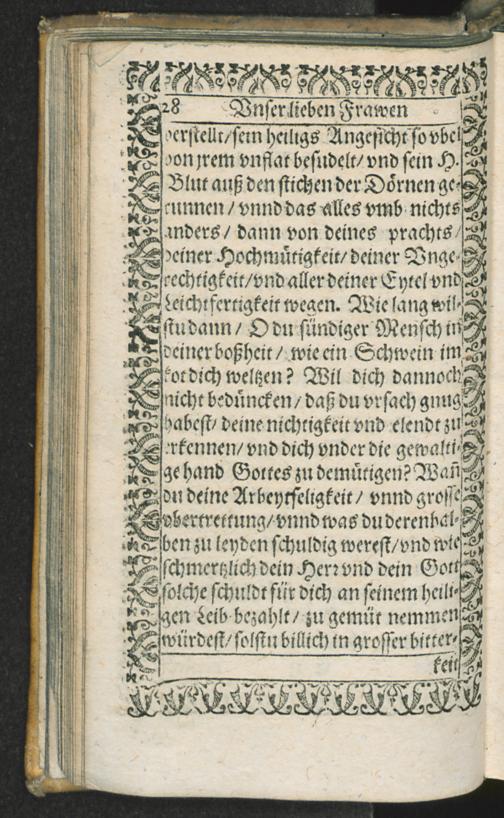 28 Vnser lieben Frawen
verstellt/ sein heiligs Angesicht so vbel
von jrem vnflat besudelt/ vnd sein H.
Blut auß den stichen der Dörnen ge-
runnen / vnnd das alles vmb nichts
anders / dann von deines prachts /
deiner Hochmütigkeit/ deiner Vnge-
rechtigkeit/ vnd aller deiner Eytel vnd
Leichtfertigkeit wegen. Wie lang wil-
stu dann / O du sündiger Mensch in
deiner boßheit / wie ein Schwein im
kot dich weltzen? Wil dich dannoch
nicht bedüncken/ daß du vrsach gnug
habest/ deine nichtigkeit vnd elendt zu
erkennen/ vnd dich vnder die gewalti-
ge hand Gottes zu demütigen? Wañ
du deine Arbeytseligkeit / vnnd grosse
vbertrettung/ vnnd was du derenhal-
ben zu leyden schuldig werest/ vnd wie
schmertzlich dein Herr vnd dein Gott
solche schuldt für dich an seinem heili-
gen Leib bezahlt / zu gemüt nemmen
würdest/ solstu billich in grosser bitter-
keit